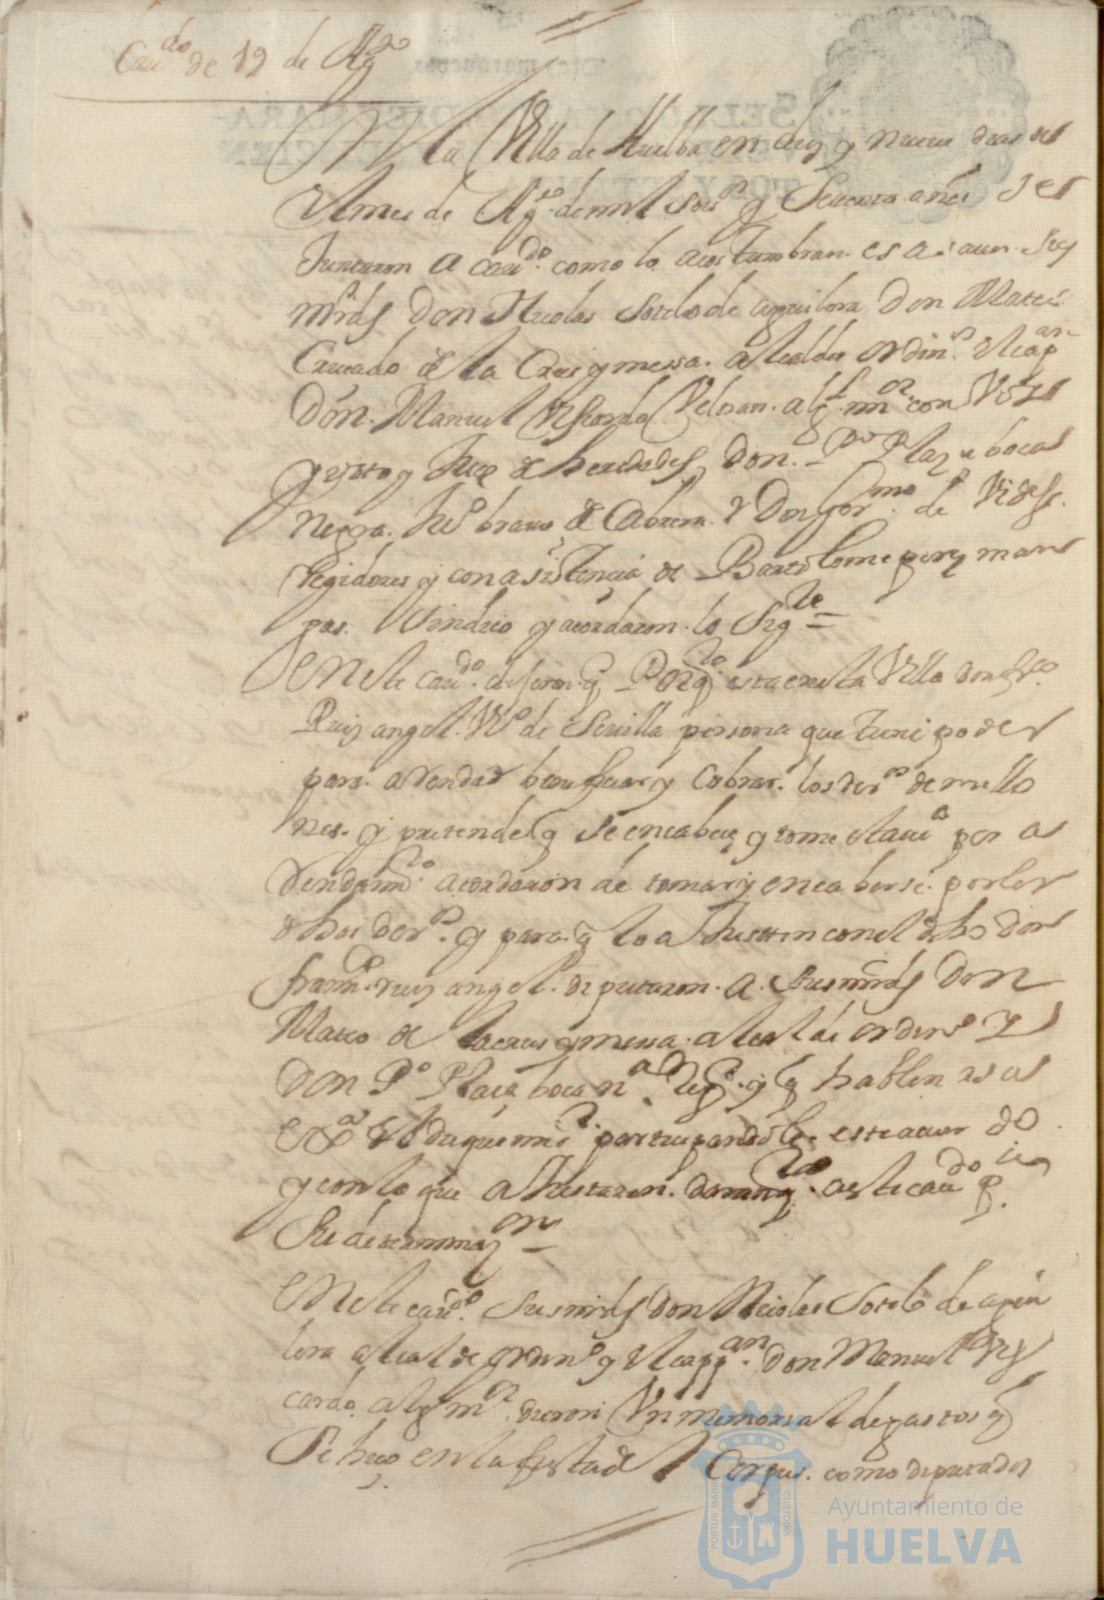 Cau.do de 19 de Ag.to
En la Villa de Huelba en diez y nueve dias del
mes de Ag.to de mill seis.s y Setenta años se
Juntaron a cau.do como lo acostumbran es a sauer sus
mrds Don Nicolas Sotelo de aguilera Don Mateo
Cruçado de la Cruz y messa alcaldes ordin.s el cap.an
Don Manuel Vis cardo alg.l m.or con Voz
y voto y Juez de heredades Don P.o Plaça bocas
negra Ju.o brauo de Cabrera Y Don Ger.mo de
Regidores y con asistencia de Bartolome perez mar
pas. Sindico y acordaron lo Sig.te
En este cau.do dijeron q Por q.to esta en esta Villa don fr.co
Ruiz angel V.o de Seuilla persona que tiene poder
para arendar beneficiar y Cobrar los der.os de millo
nes y pretende q se encabeze y tome esta uilla por a
rendam.to acordaron de tomar y encabesarse por los
dhos der.os y para q lo ajusten con el dho don
fran.co ruiz angel diputaron a sus mrds Don
Mateo de la cruz y messa alcalde ordin.o Y
Don P.o Plaça boca n.a reg.or y q hablen a su
Ex.a el duque mi s.r participandole este acuerdo
y con lo que ajustaren den q.ta a este cau.do p.
Su determinaz.on
En este cau.do Sus mrds don Nicolas Sotelo de agui
lera alcalde ordin.o y el capp.an Don Manuel Vis
cardo alg m.or dieron Vn memorial de gastos q
Se hizo en la fiesta del Corpus como diputados
Ayuntamiento de
HUELVA
PORTUS MARIS
CUSTODIA